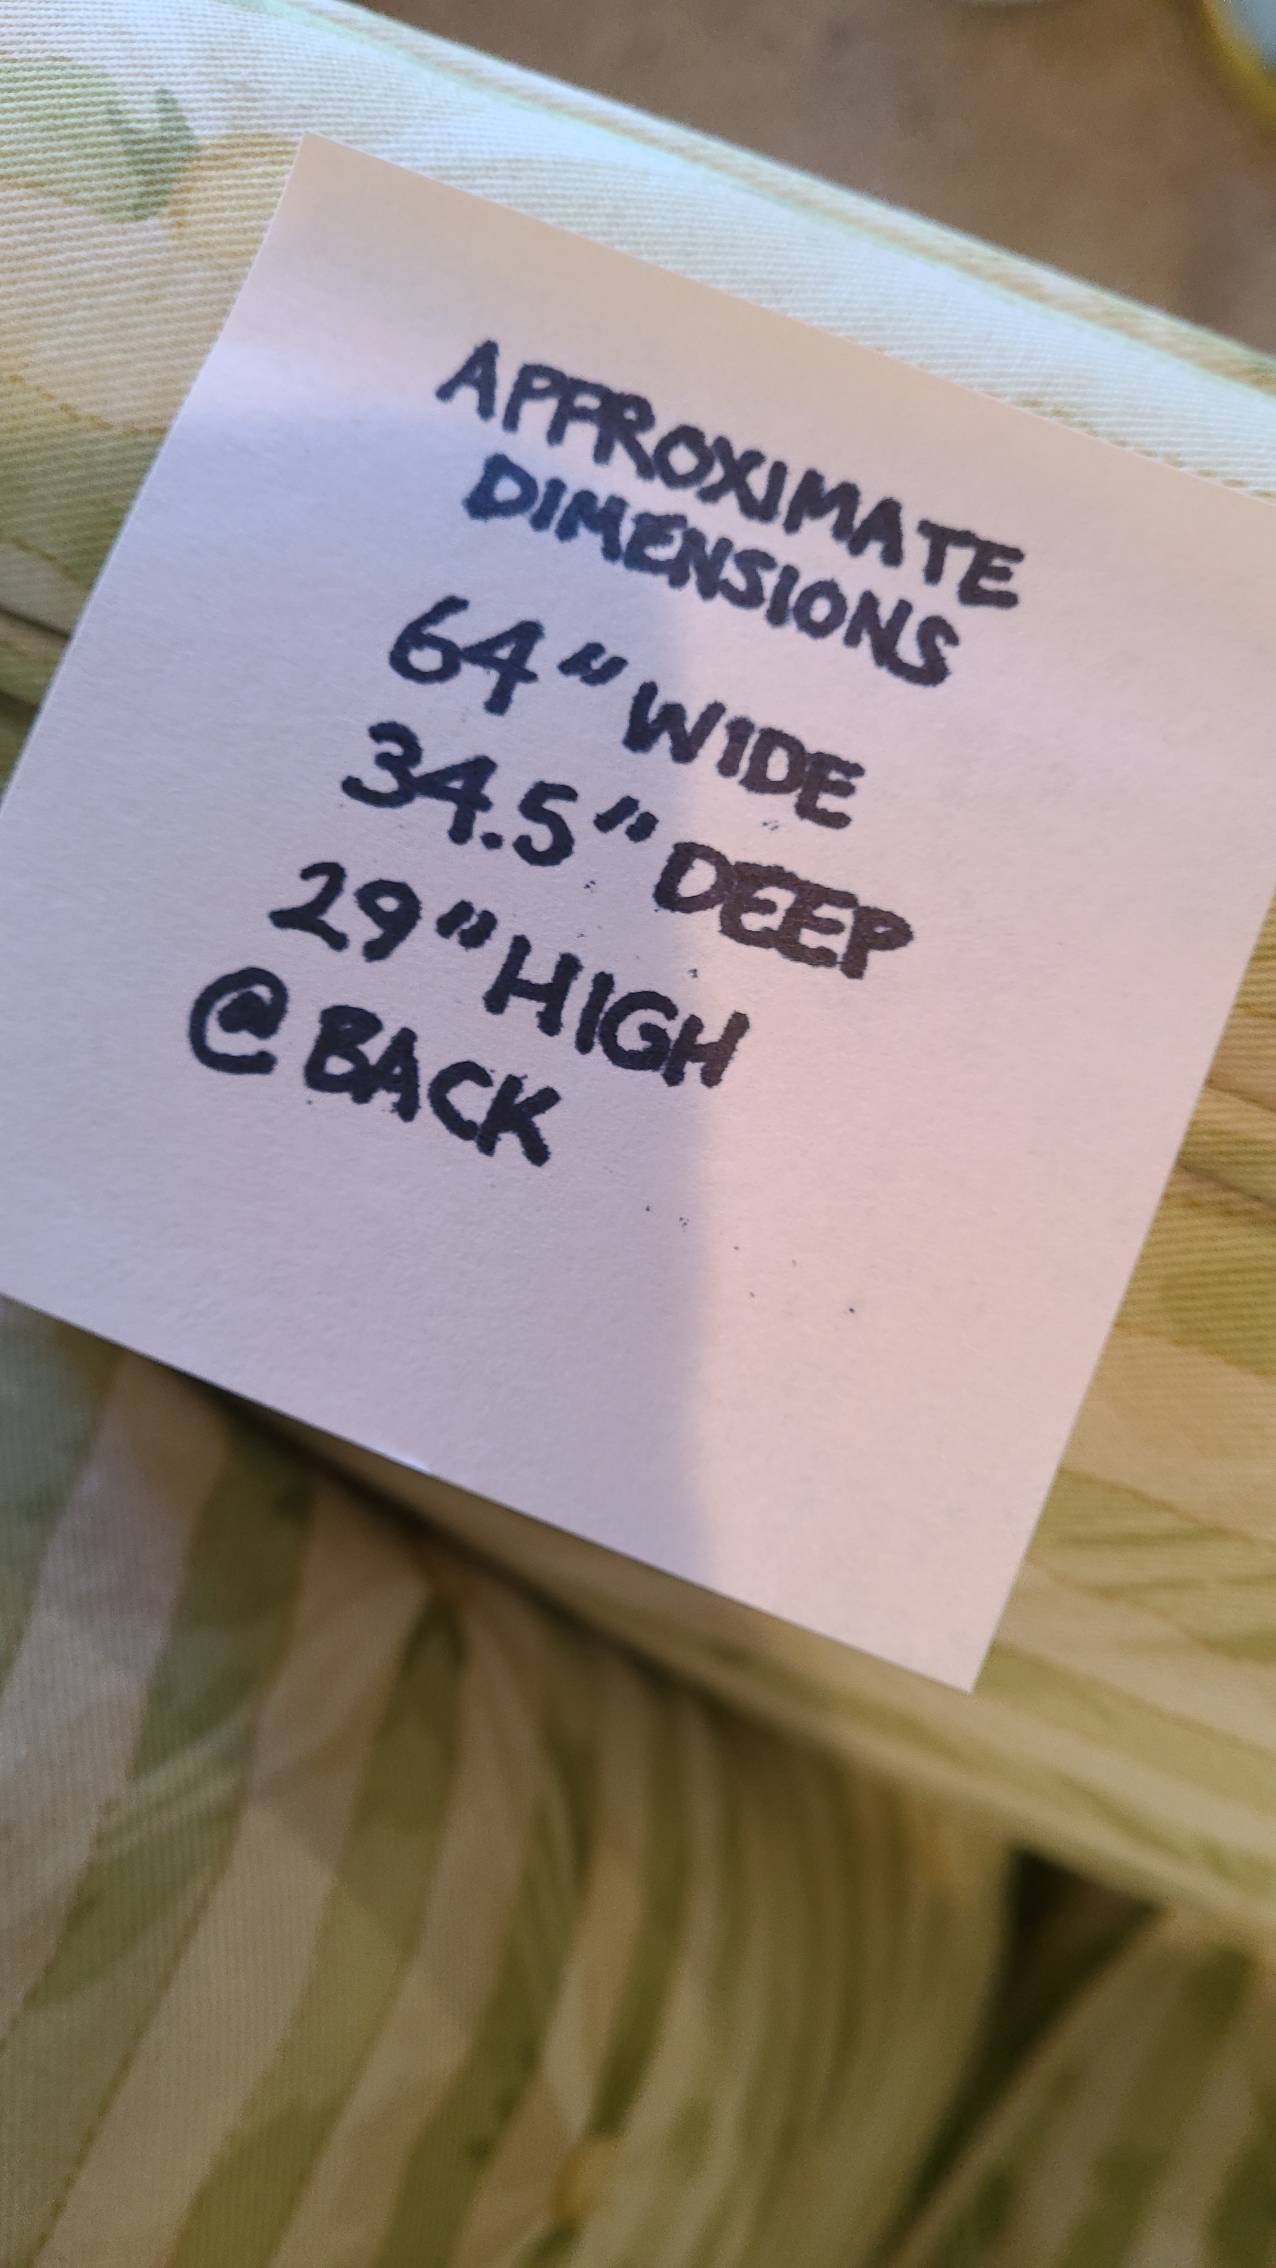 APPROXIMATE
DIMENSIONS
64" WIDE
34.5" DEEP
29" HIGH
@ BACK